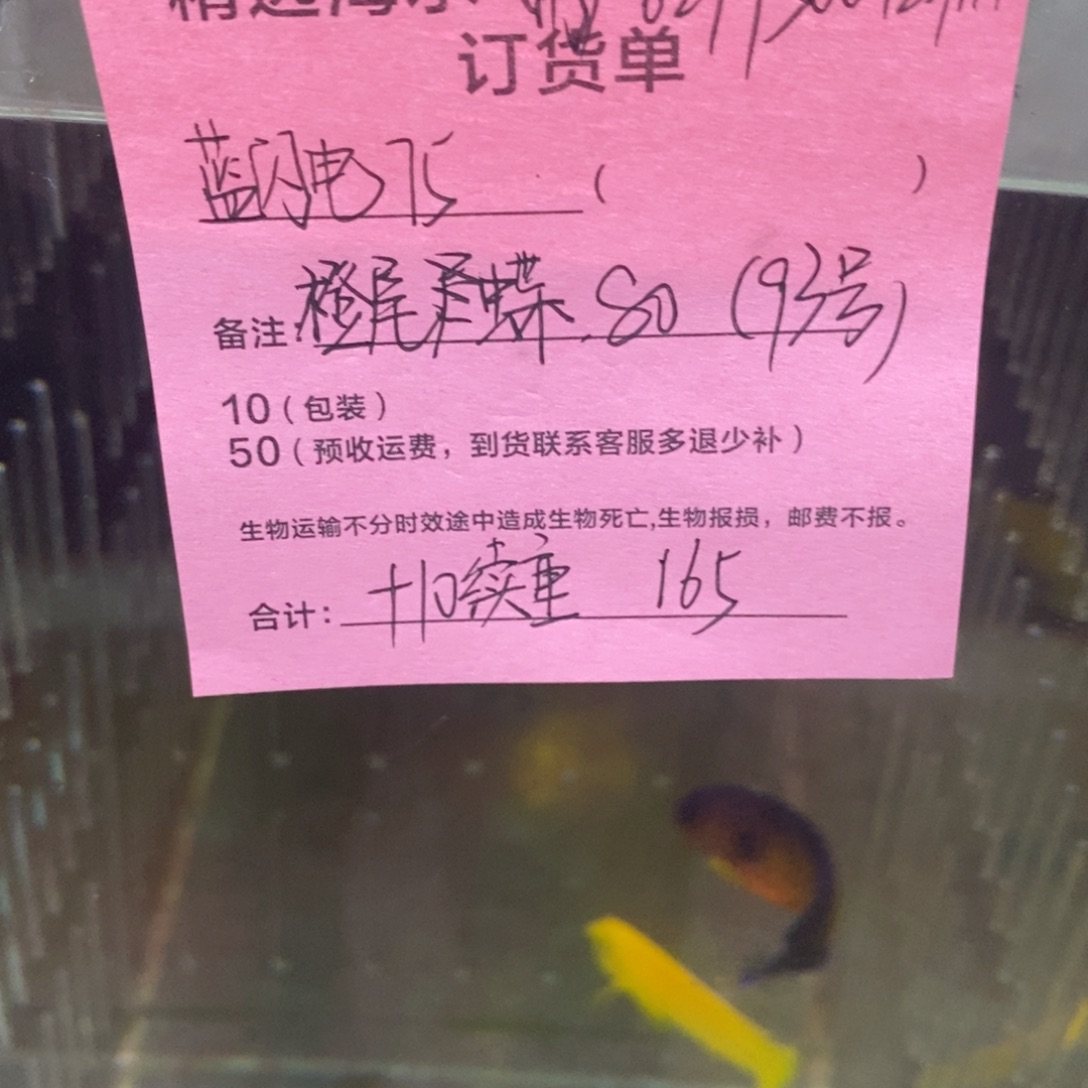 订货单
蓝闪电 75 ( )
备注: 橙尾 蝶. 80 (93号)
10(包装)
50(预收运费,到货联系客服多退少补)
生物运输不分时效途中造成生物死亡,生物报损,邮费不报。
合计: +10续重 165